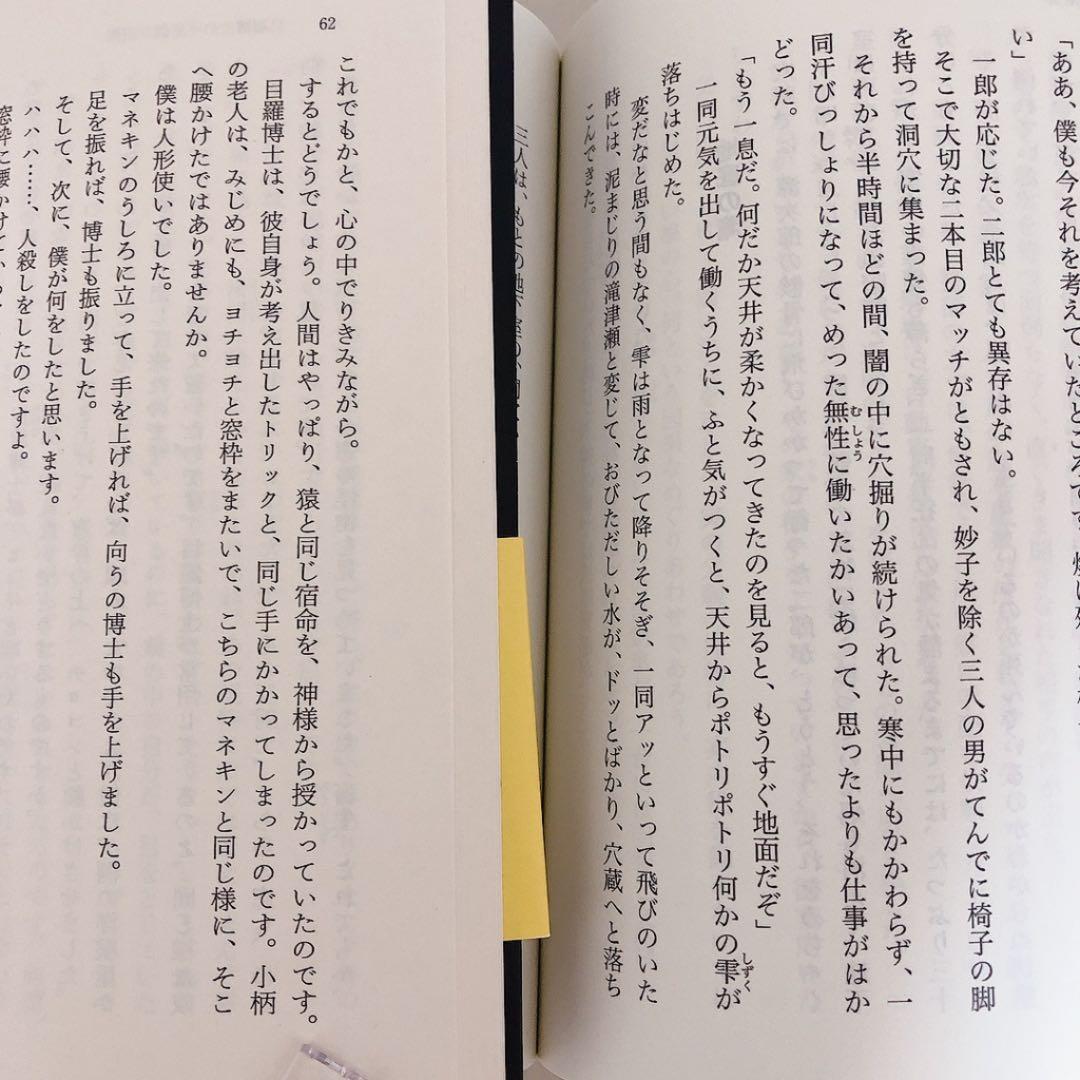 「ああ、僕も今それを考えていたところです。
い」
一郎が応じた。二郎とても異存はない。
そこで大切な二本目のマッチがともされ、妙子を除く三人の男がてんでに椅子の脚
を持って洞穴に集まった。
それから半時間ほどの間、闇の中に穴掘りが続けられた。寒中にもかかわらず、一
同汗びっしょりになって、めった無性に働いたかいあって、思ったよりも仕事がはか
むしょう
どった。
「もう一息だ。何だか天井が柔かくなってきたのを見ると、もうすぐ地面だぞ」
一同元気を出して働くうちに、ふと気がつくと、天井からポトリポトリ何かの雫が
しずく
落ちはじめた。
変だなと思う間もなく、雫は雨となって降りそそぎ、一同アッといって飛びのいた
時には、泥まじりの滝津瀬と変じて、おびただしい水が、ドッとばかり、穴蔵へと落ち
こんできた。
三人は、もとの地下室の
62
これでもかと、心の中でりきみながら。
するとどうでしょう。人間はやっぱり、猿と同じ宿命を、神様から授かっていたのです。
目羅博士は、彼自身が考え出したトリックと、同じ手にかかってしまったのです。小柄
の老人は、みじめにも、ヨチヨチと窓枠をまたいで、こちらのマネキンと同じ様に、そこ
へ腰かけたではありませんか。
僕は人形使いでした。
マネキンのうしろに立って、手を上げれば、向うの博士も手を上げました。
足を振れば、博士も振りました。
そして、次に、僕が何をしたと思います。
ハハハ……、人殺しをしたのですよ。
窓枠に腰かけて